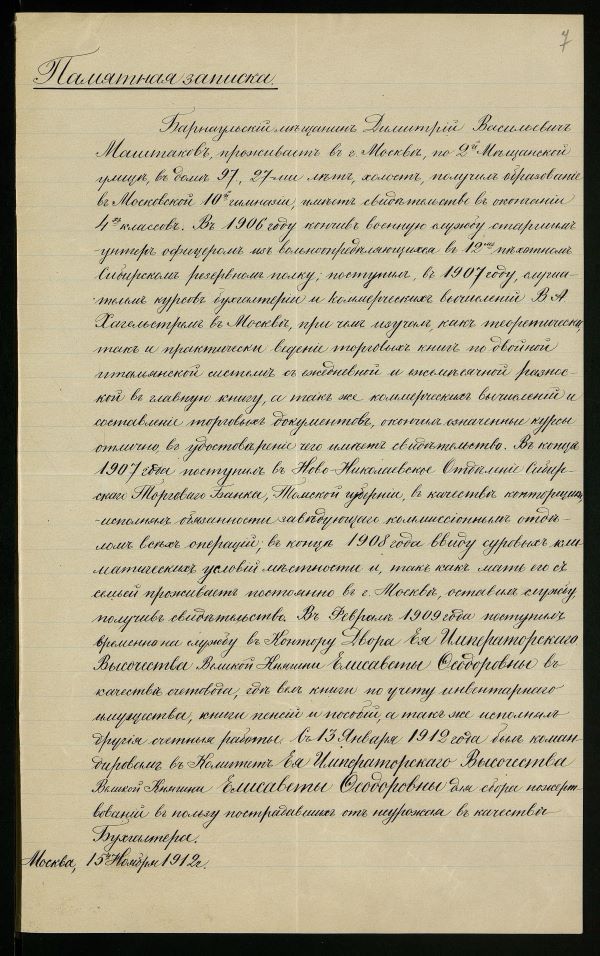 7
Памятная записка.
Барнаульскій мѣщанинъ Димитрій Васильевичъ
Маштаковъ, проживаетъ въ г. Москвѣ, по 2й Мѣщанской
улицѣ, въ домѣ 97, 27-ми лѣтъ, холостъ, получилъ образованіе
въ Московской 10й гимназіи, имѣетъ свидѣтельство въ окончаніи
4хъ классовъ. Въ 1906 году кончивъ военную службу старшимъ
унтеръ офицеромъ изъ вольноопредѣляющихся въ 12мъ пѣхотномъ
Сибирскомъ резервномъ полку; поступилъ, въ 1907 году, слуша-
-телемъ курсовъ бухгалтеріи и коммерческихъ вычисленій В А
Хагельстремъ въ Москвѣ, при чемъ изучилъ, какъ теоретически,
такъ и практически веденіе торговыхъ книгъ по двойной
итальянской системѣ съ ежедневной и ежемѣсячной разнос-
кой въ главную книгу, а такъ же коммерческихъ вычисленій и
составленіе торговыхъ документовъ, окончилъ означенные курсы
отлично, въ удостовѣреніе чего имѣетъ свидѣтельство. Въ концѣ
1907 года поступилъ въ Ново-Николаевское Отдѣленіе Сибир-
скаго Торговаго Банка, Томской губерніи, въ качествѣ конторщика,
-исполнялъ обязанности завѣдующаго коммиссіоннымъ отдѣ-
ломъ всѣхъ операцій; въ концѣ 1908 года ввиду суровыхъ кли-
матическихъ условій мѣстности и, такъ какъ мать его съ
семьей проживаетъ постоянно въ г. Москвѣ, оставилъ службу,
получивъ свидѣтельство. Въ Февралѣ 1909 года поступилъ
временно на службу въ Контору Двора Ея Императорскаго
Высочества Великой Княгини Елисаветы Ѳеодоровны въ
качествѣ счетовода, гдѣ велъ книги по учету инвентарнаго
имущества, книги пенсій и пособій, а такъ же исполнялъ
другія счетныя работы. Съ 13 Января 1912 года былъ коман-
дированъ въ Комитетъ Ея Императорскаго Высочества
Великой Княгини Елисаветы Ѳеодоровны для сбора пожерт-
вованій въ пользу пострадавшихъ отъ неурожая въ качествѣ
Бухгалтера.
Москва, 15го Ноября 1912 г.